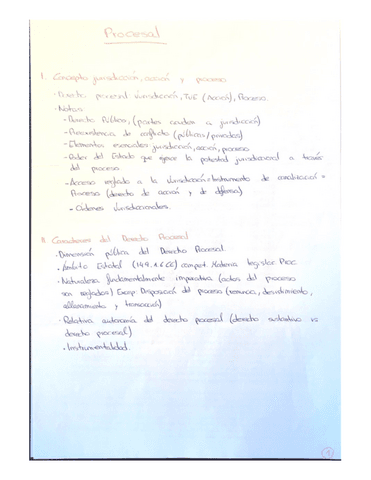 Procesal
I. Concepto jurisdicción, acción y proceso
· Derecho procesal: Jurisdicción, TJE (Acción), Proceso.
· Notas:
- Derecho Público, (partes acuden a jurisdicción)
- de conflicto (públicos/privados)
- Elementos esenciales jurisdicción, acción, proceso
- Poder del Estado que ejerce la potestad jurisdiccional a través
del proceso
- Acceso reglado a la Jurisdicción: Instrumento de canalización =
Proceso (derecho de acción y de defensa)
- Órdenes Jurisdiccionales.
II. Caracteres del Derecho Procesal
· Dimensión pública del Derecho Procesal.
· Ámbito Estatal (149.1.6 CE) compet. Materia legislac Proc.
· Naturaleza fundamentalmente imperativa (actos del proceso
son reglados) Excep: Disposición del proceso (renuncia, desistimiento,
allanamiento y transacción)
· Relativa autonomía del derecho procesal (derecho sustantivo vs
derecho procesal)
· Instrumentalidad.
1